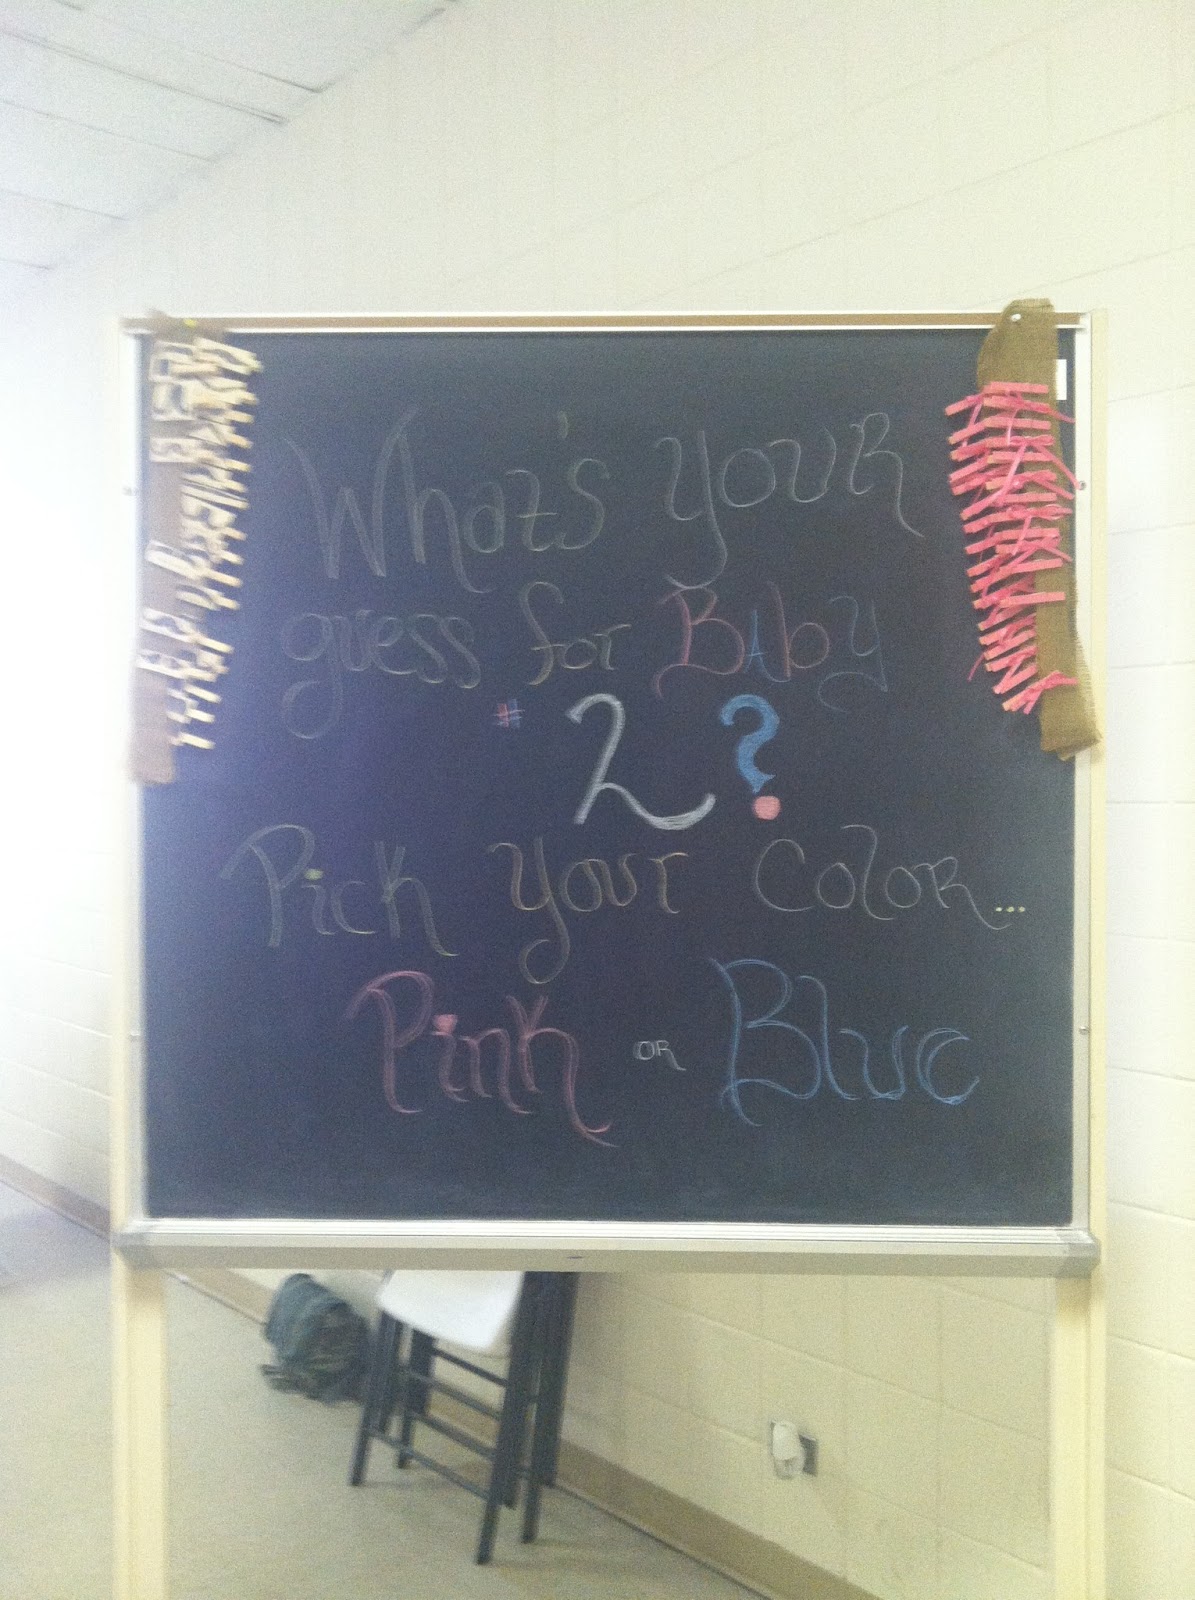 What's your
guess for Baby
# 2 ?
Pick your color...
Pink or Blue